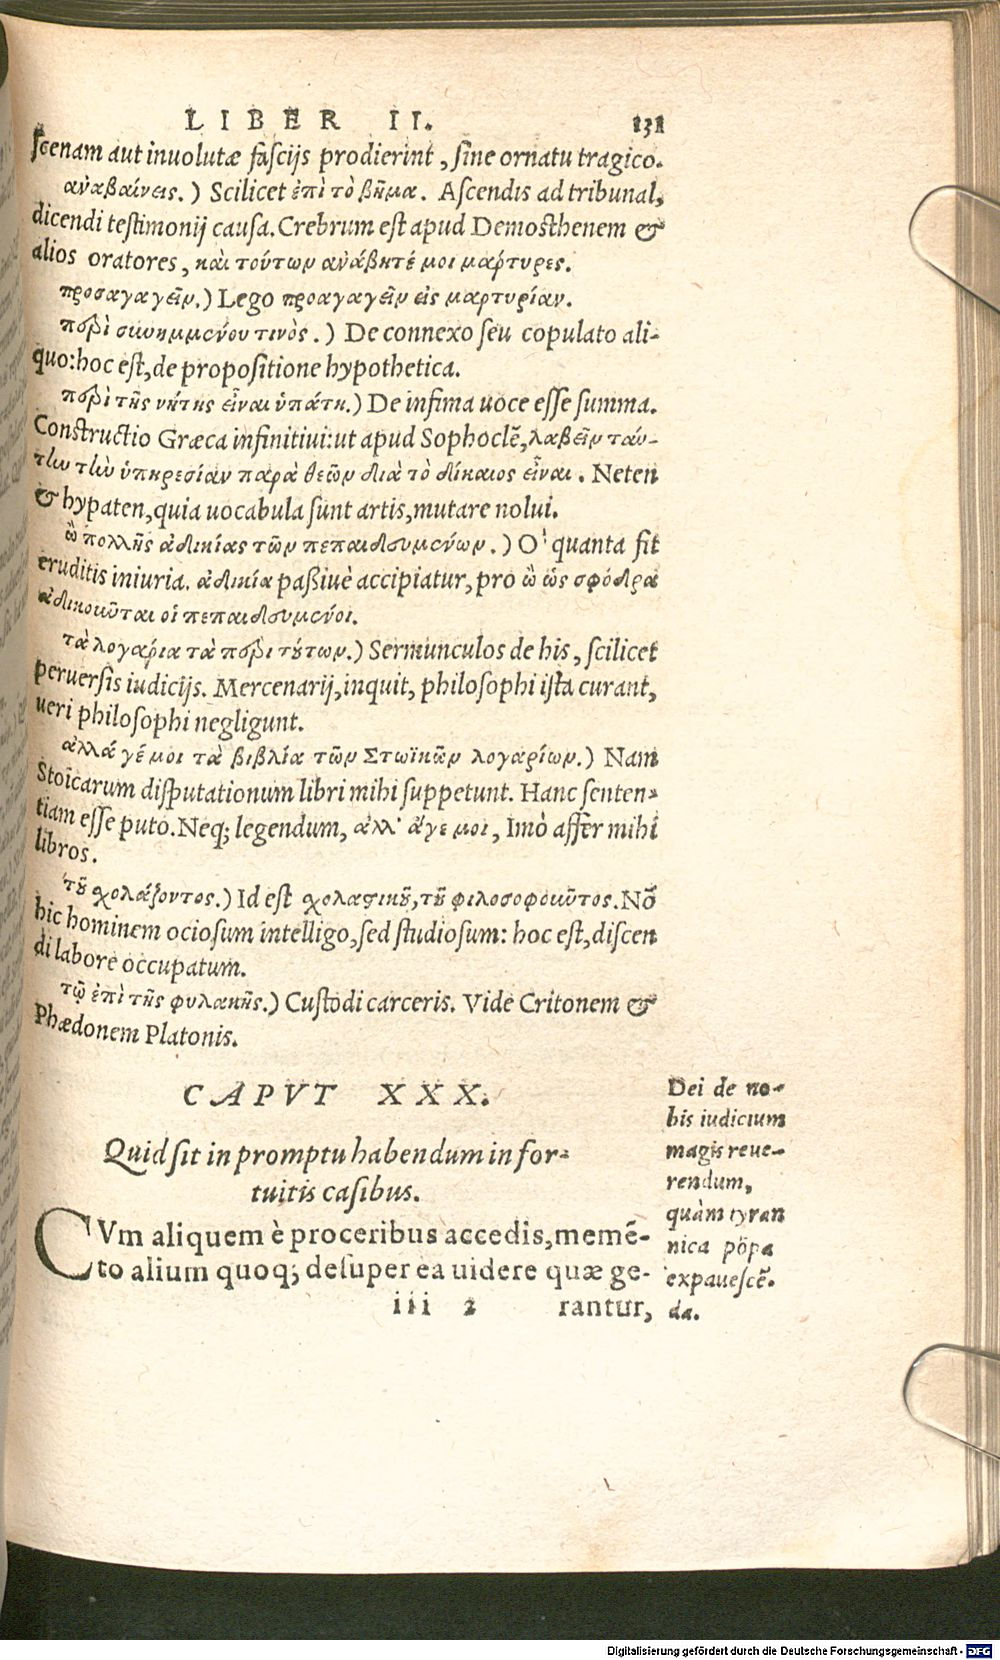 LIBER II. 131
ſcenam aut inuolutæ faſcijs prodierint, ſine ornatu tragico.
ἀναβαίνεις.) Scilicet ἐπὶ τὸ βῆμα. Aſcendis ad tribunal,
dicendi teſtimonij cauſa. Crebrum eſt apud Demoſthenem &
alios oratores, καὶ τούτων ἀνάβητέ μοι μάρτυρες.
προσαγαγεῖν.) Lego προαγαγεῖν εἰς μαρτυρίαν.
περὶ συνημμένου τινὸς.) De connexo ſeu copulato ali-
quo: hoc eſt, de propoſitione hypothetica.
περὶ τῆς νήτης εἶναι ὑπάτη.) De infima uoce eſſe ſumma.
Conſtructio Græca infinitiui: ut apud Sophoclẽ, λαβεῖν ταύ-
την τὴν ὑπηρεσίαν παρὰ θεῶν διὰ τὸ δίκαιος εἶναι. Neten
& hypaten, quia uocabula ſunt artis, mutare nolui.
ὢ πολλῆς ἀδικίας τῶν πεπαιδευμένων.) O' quanta fit
eruditis iniuria. ἀδικία paßiuè accipiatur, pro ὢ ὡς σφόδρα
ἀδικοῦνται οἱ πεπαιδευμένοι.
τὰ λογάρια τὰ περὶ τούτων.) Sermunculos de his, ſcilicet
peruerſis iudicijs. Mercenarij, inquit, philoſophi iſta curant,
ueri philoſophi negligunt.
ἀλλά γέ μοι τὰ βιβλία τῶν Στωϊκῶν λογαρίων.) Nam
Stoicarum diſputationum libri mihi ſuppetunt. Hanc ſenten-
tiam eſſe puto. Neq; legendum, ἀλλ' ἄγε μοι, Imò affer mihi
libros.
τοῦ σχολάζοντος.) Id eſt σχολαστικοῦ, τοῦ φιλοσοφοῦντος. Nõ
hic hominem ocioſum intelligo, ſed ſtudioſum: hoc eſt, diſcen
di labore occupatum.
τῷ ἐπὶ τῆς φυλακῆς.) Cuſtodi carceris. Vide Critonem &
Phædonem Platonis.
CAPVT XXX.
Quid ſit in promptu habendum in for-
tuitis caſibus.
CVm aliquem è proceribus accedis, memẽ-
to alium quoq; deſuper ea uidere quæ ge-
iii 2 rantur,
Dei de no-
bis iudicium
magis reue-
rendum,
quàm tyran
nica põpa
expaueſcẽ-
da.
Digitalisierung gefördert durch die Deutsche Forschungsgemeinschaft - DFG